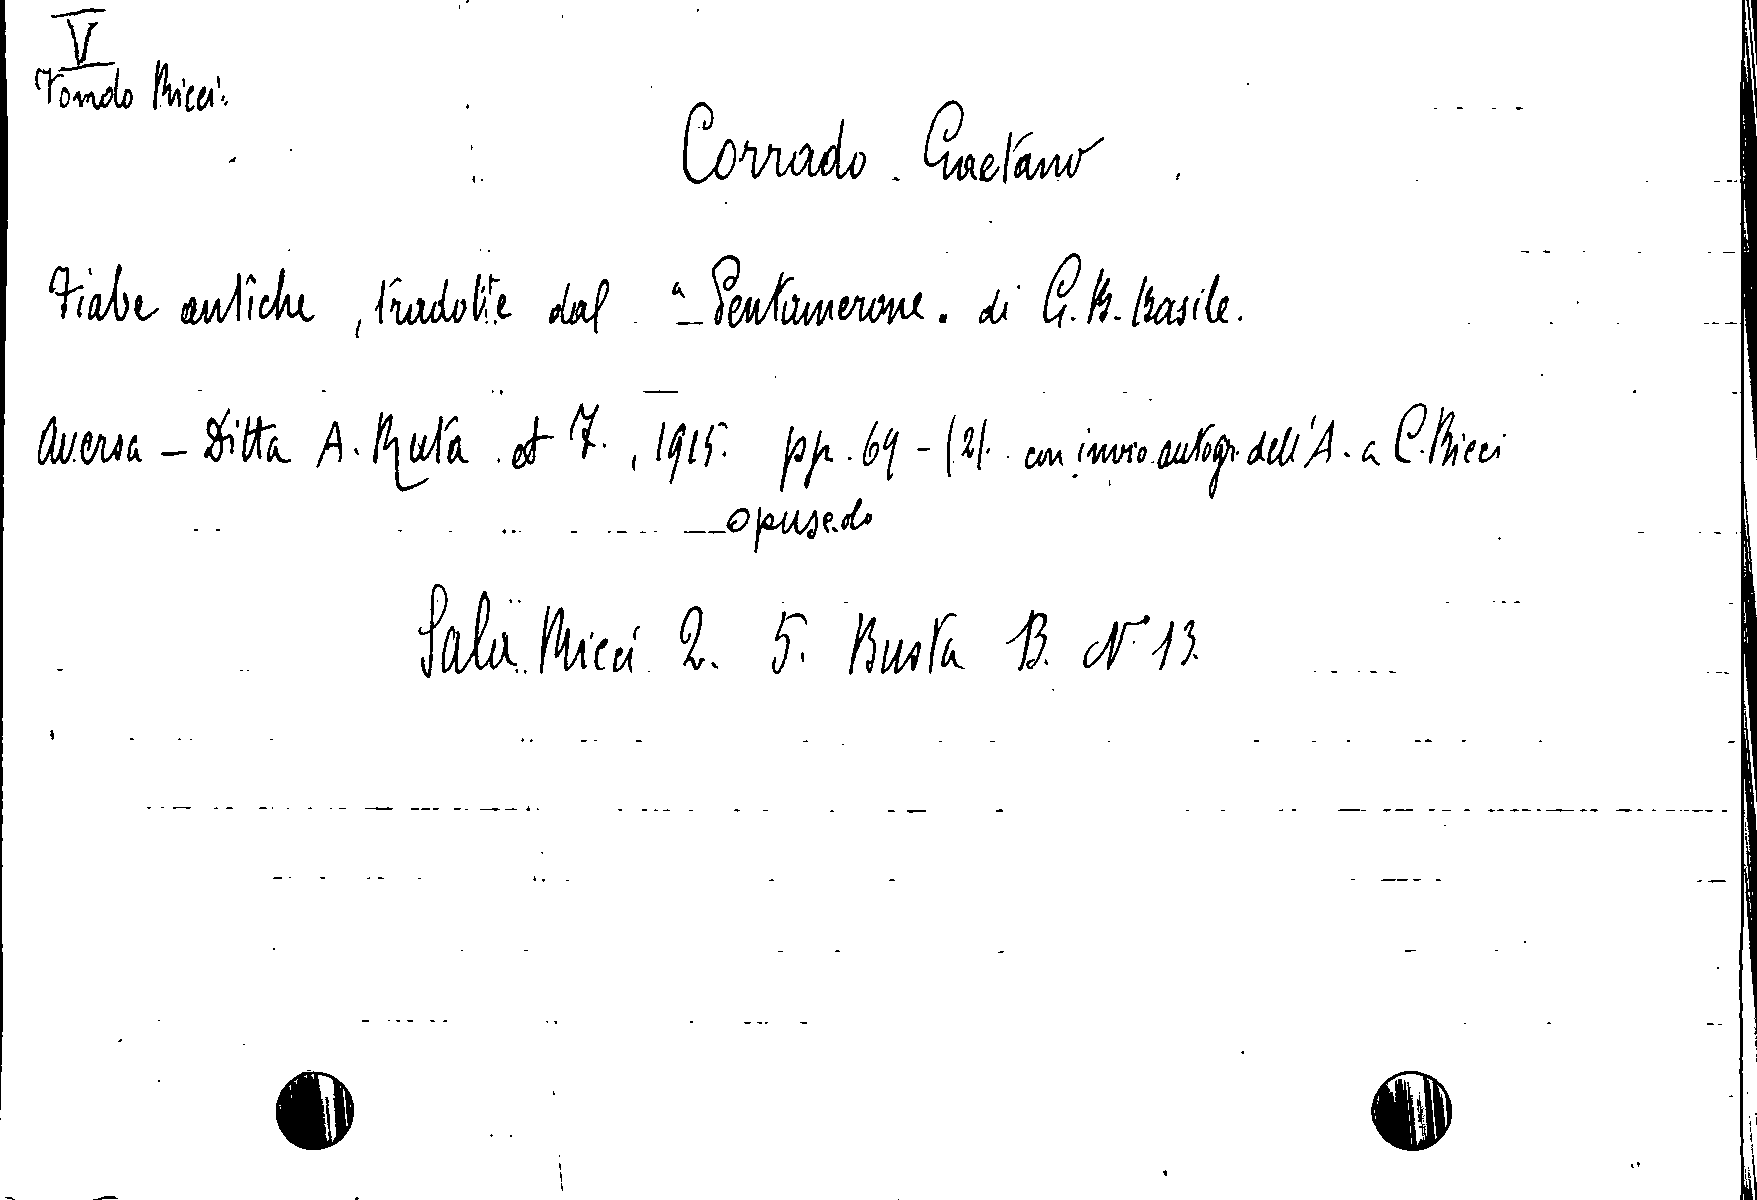 V
Fondo Ricci.
Corrado Gaetano
Fiabe antiche, tradotte dal "Pentamerone" di G. B. Basile.
Aversa - Ditta A. Ruta et F., 1915. pp. 69 - (2). con invio autogr. dell'A. a C. Ricci
opuscolo
Sala Ricci 2. 5. Busta B. N° 13.